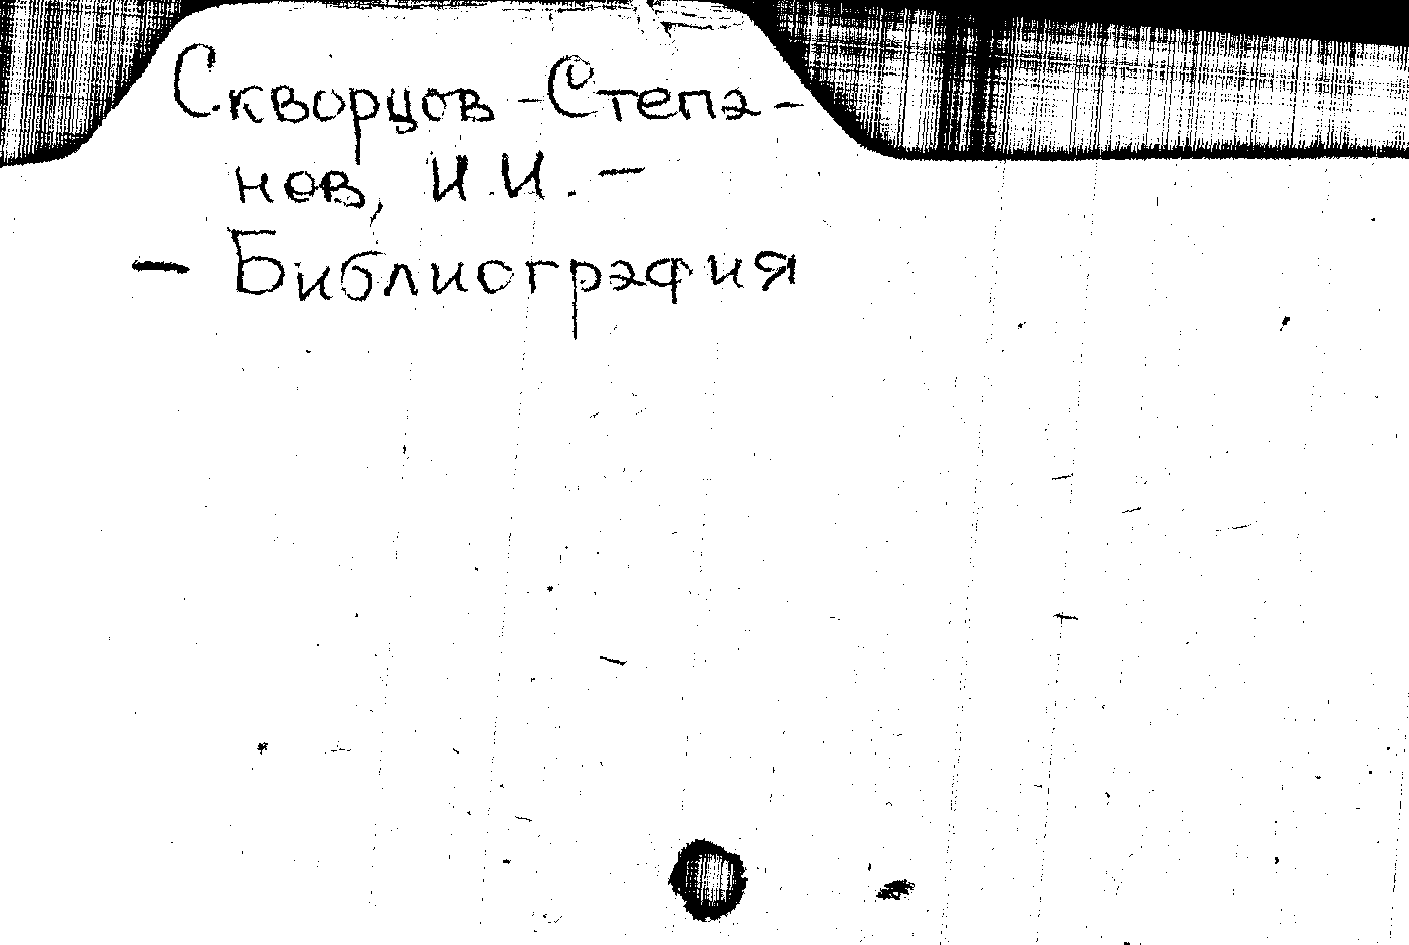 Скворцов-Степа-
нов, И.И. -
- Библиография